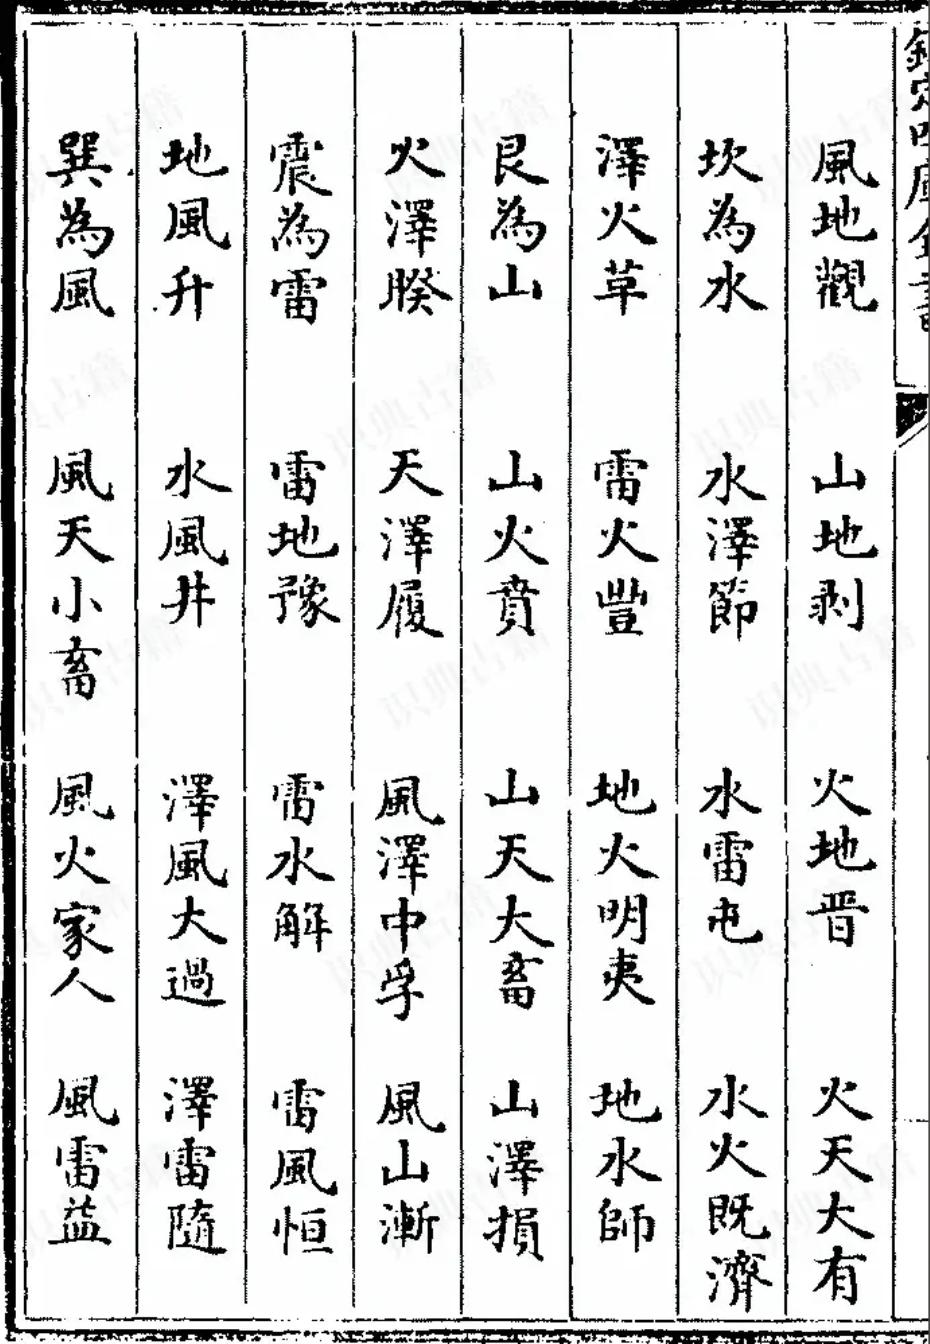 欽定四庫全書
風地觀 山地剥 火地晋 火天大有
坎為水 水澤節 水雷屯 水火既濟
澤火草 雷火豐 地火明夷 地水師
艮為山 山火賁 山天大畜 山澤損
火澤睽 天澤履 風澤中孚 風山漸
震為雷 雷地豫 雷水解 雷風恒
地風升 水風井 澤風大過 澤雷隨
巽為風 風天小畜 風火家人 風雷益
识典古籍